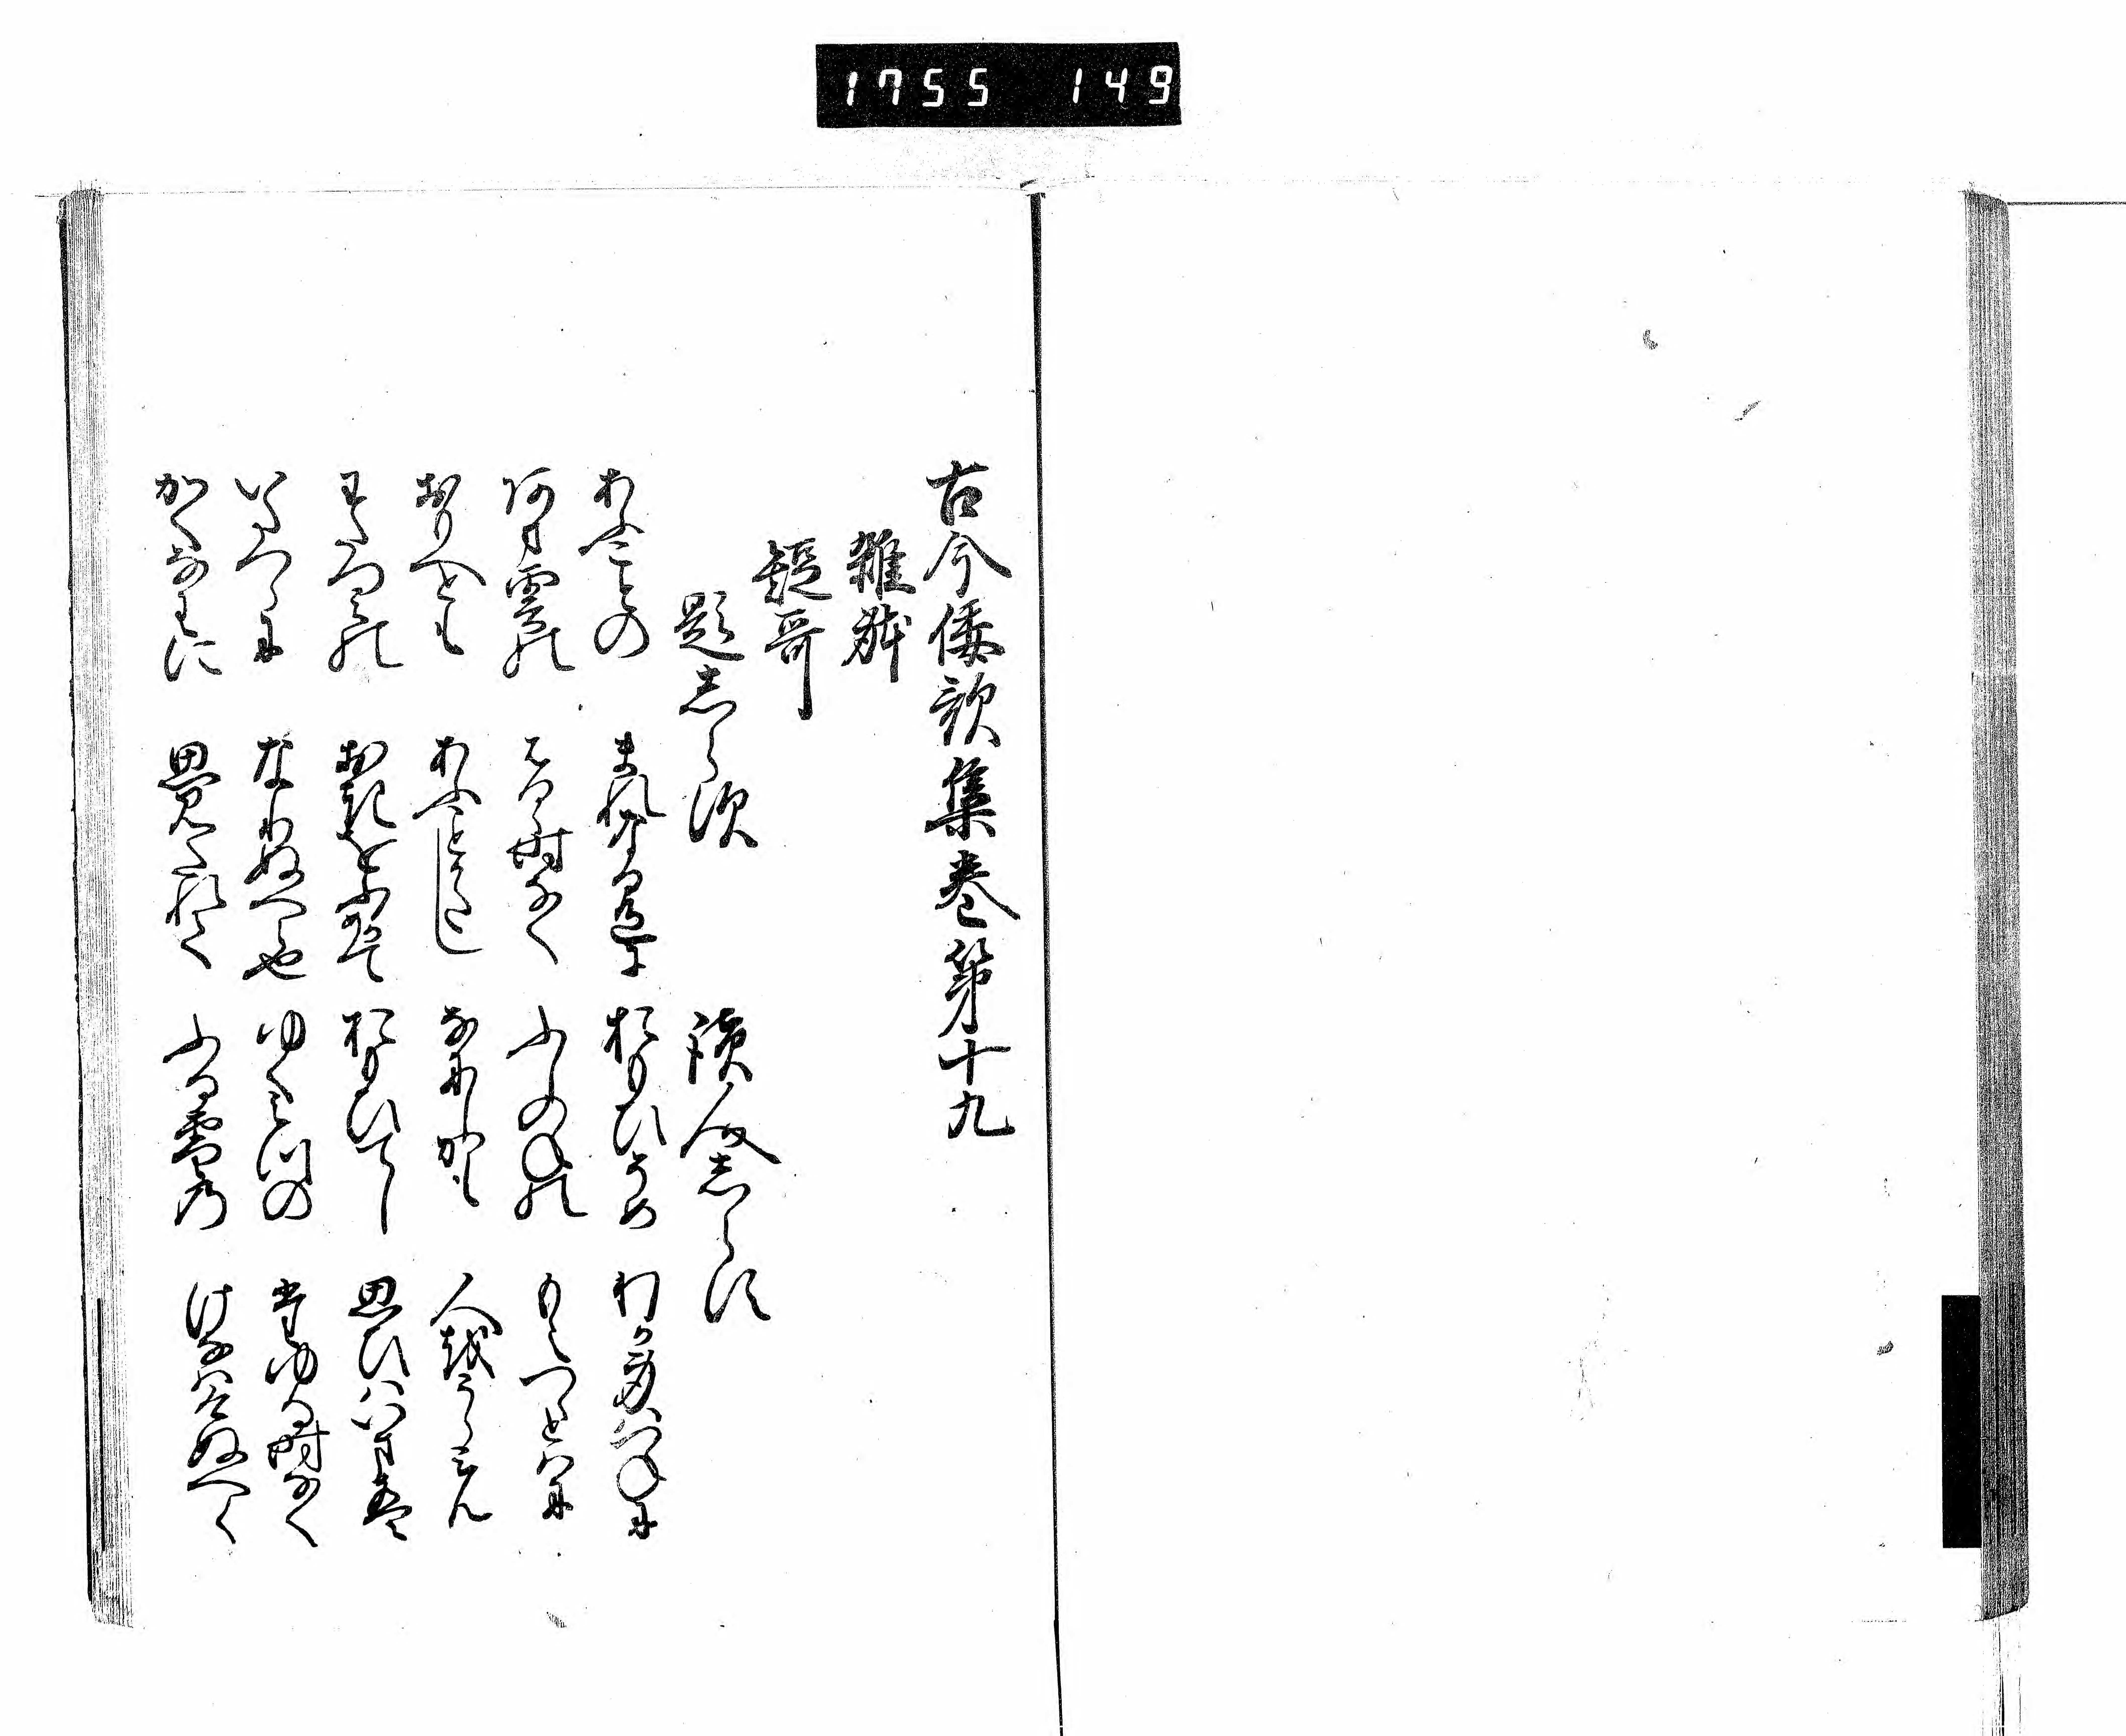 1755 149
古今倭歌集巻第十九
雑躰
短哥
題志らす
読人志らす
あふことの まれなるいろに おもひそめ わか身はつねに
あま雲の はるゝ時なく ふしのねの もえつゝとはに
おもへとも あふことかたし なにしかも 人をうらみん
わたつみの おきをふかめて おもひてし 思ひはいまは
いたつらに なりぬへら也 ゆく水の たゆる時なく
かくなわに 思ひみたれて ふる雪の けなはけぬへく